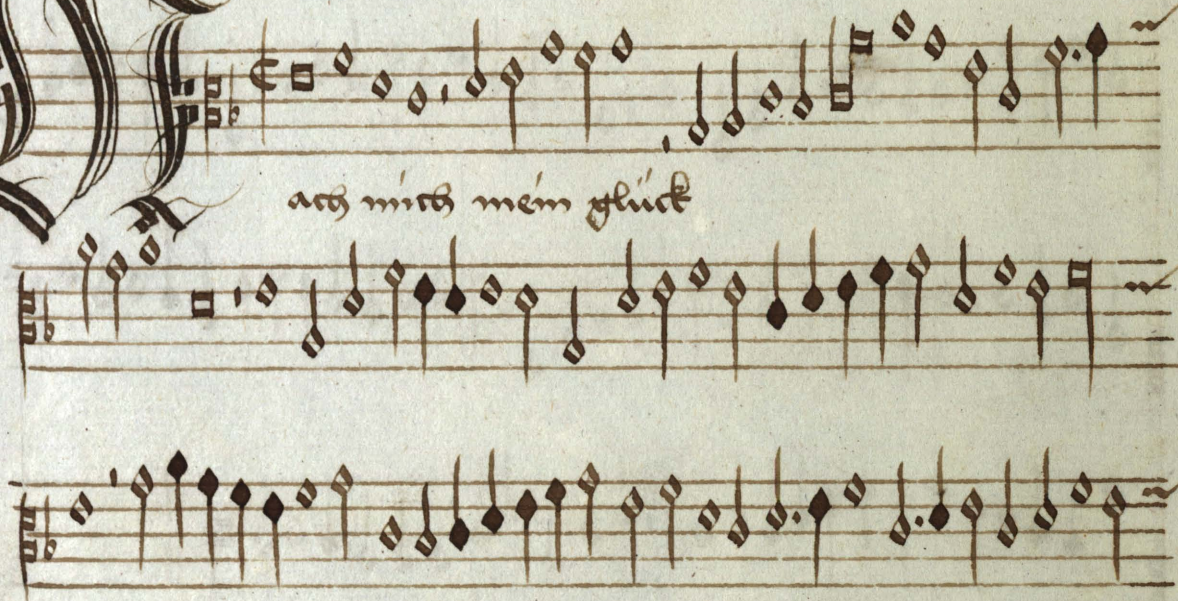 ach mich mein glück